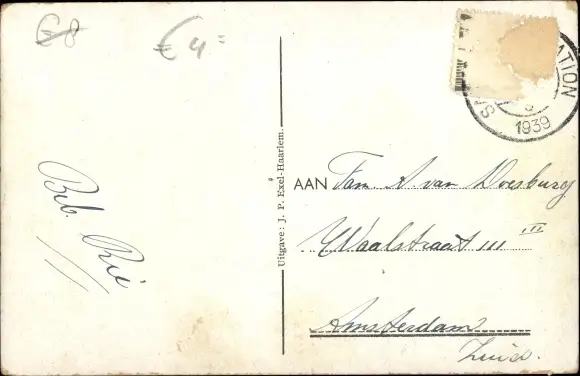 €8
€4=
Beb. Rie
Uitgave: J. P. Exel-Haarlem.
STATION
1939
AAN Fam. A. van Doesburg
Waalstraat 111 III
Amsterdam
Zuid.